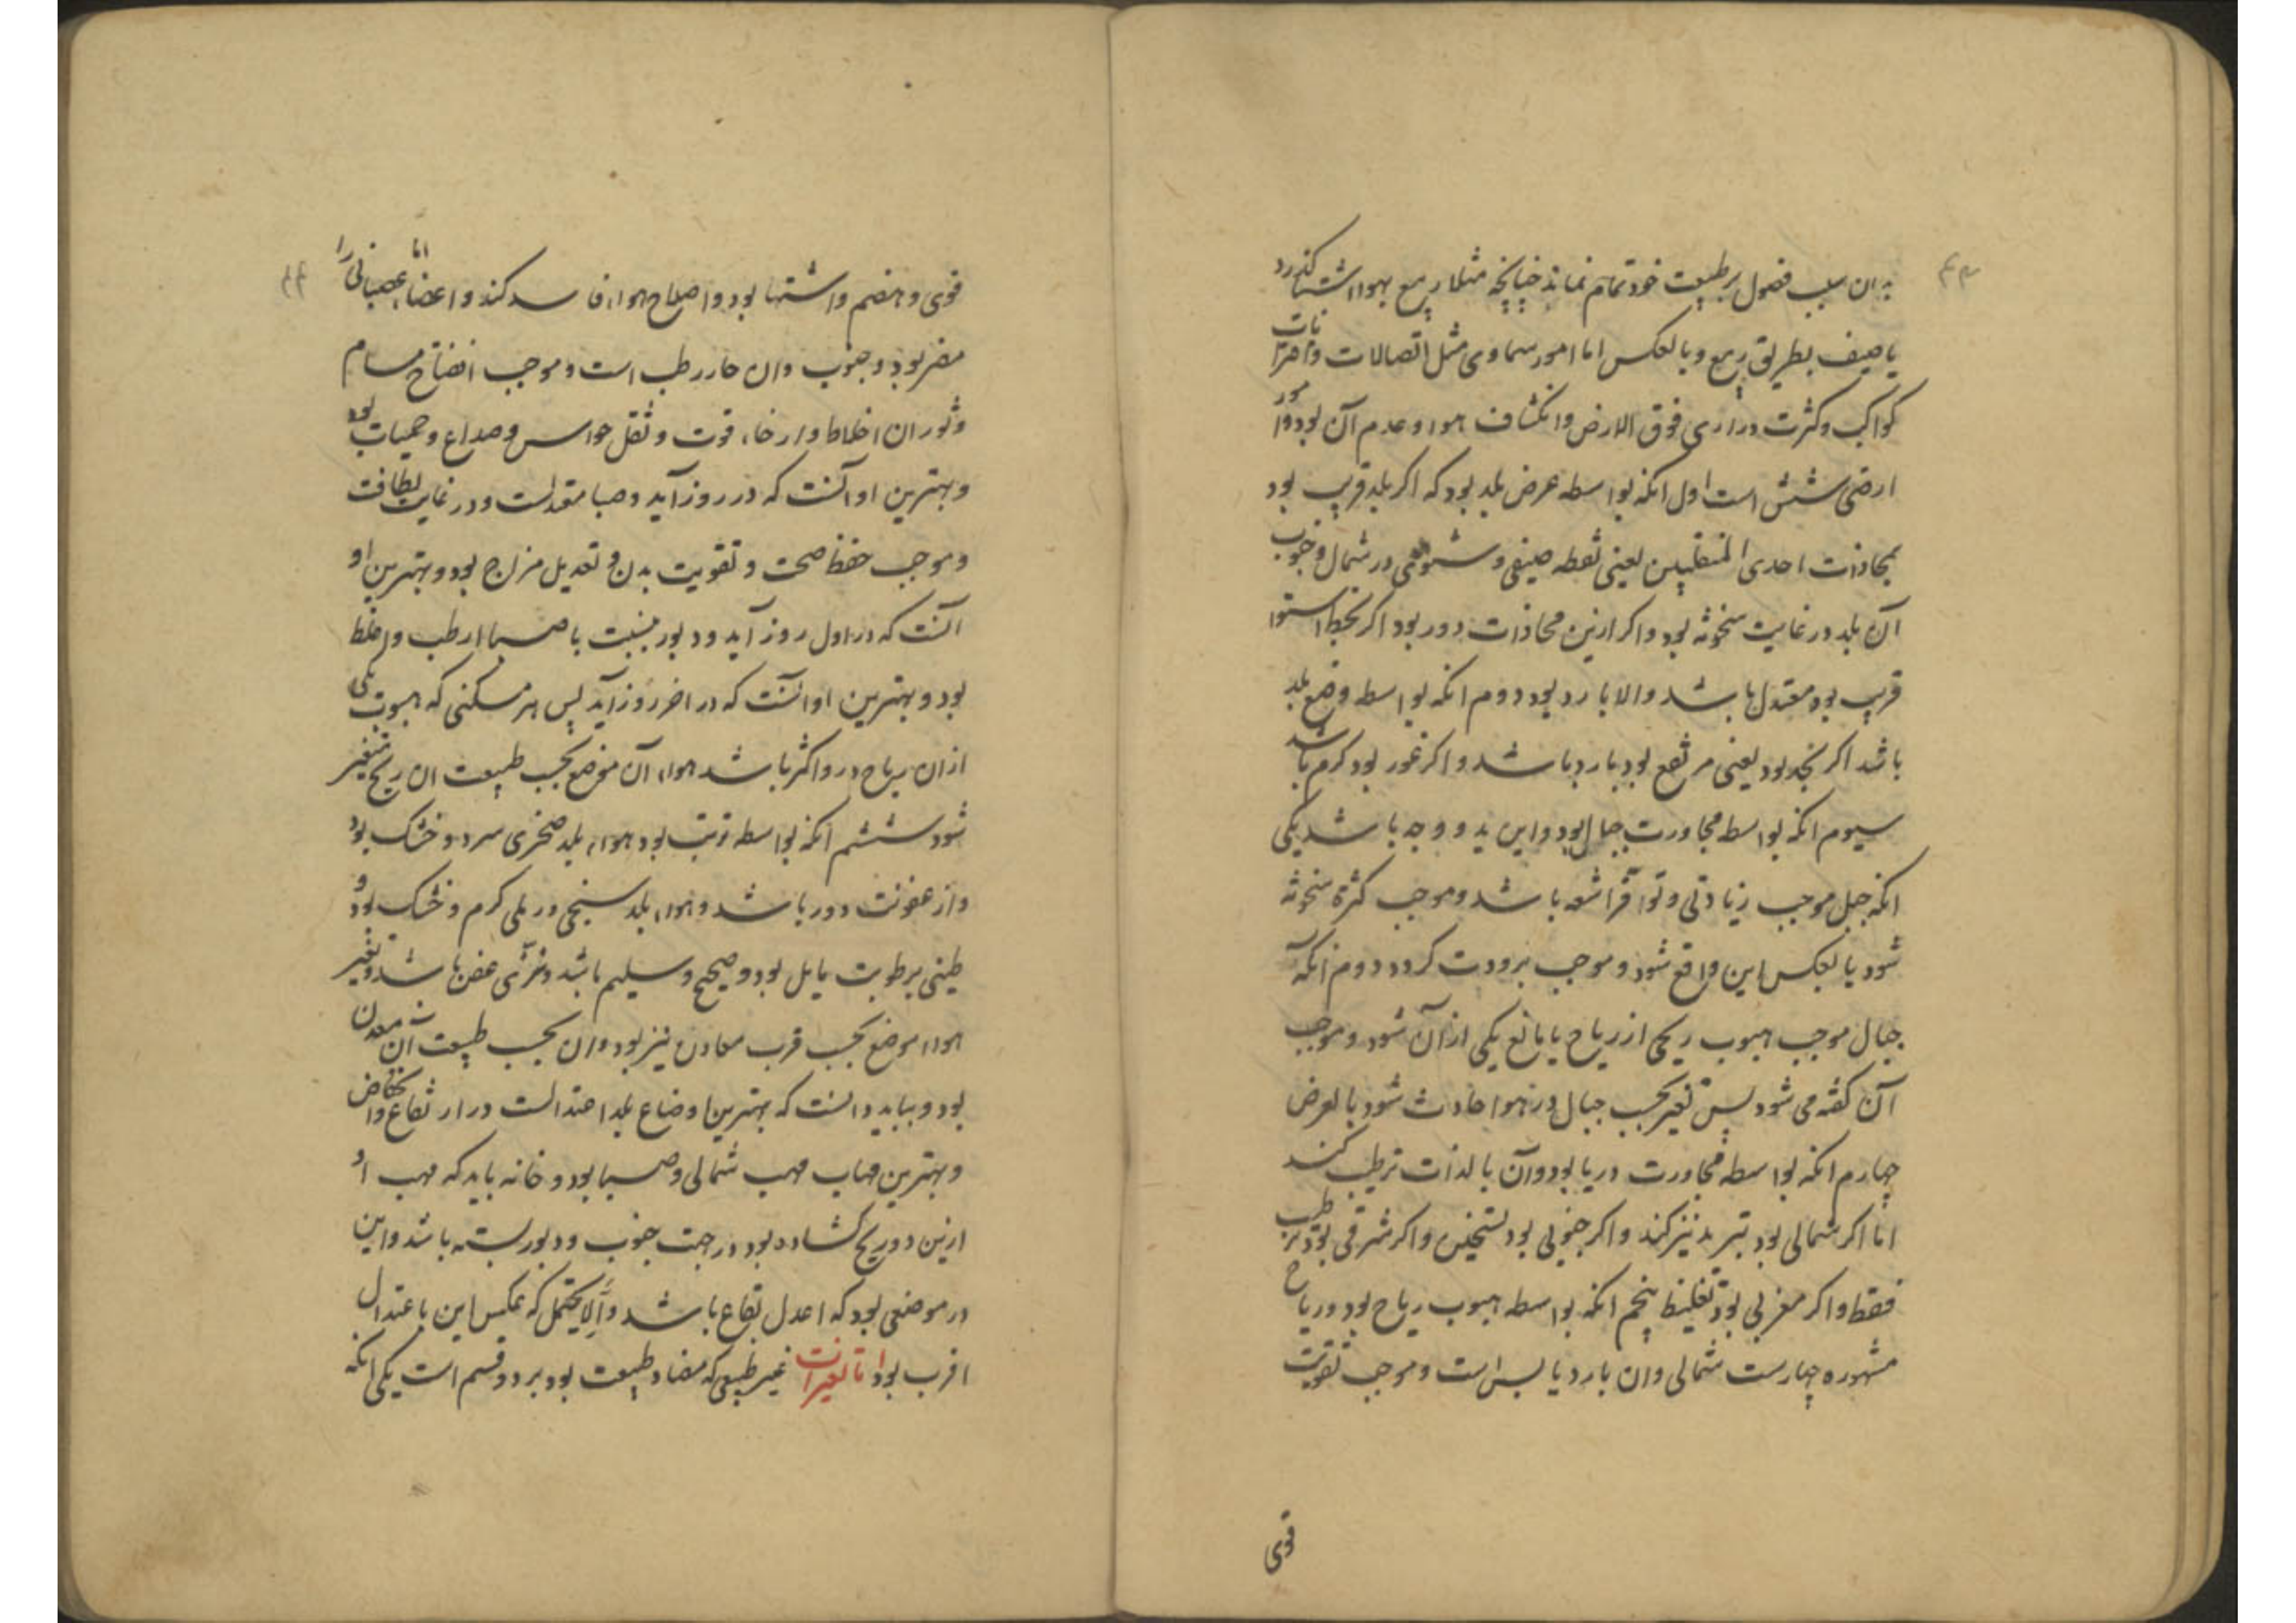 بدان سبب فصول بر طبیعت خود تمام نماند چنانچه مثلا ربیع بهوا شتا کذرد
یا صیف بطریق ربیع و بالعکس اما امور سماوی مثل اتصالات و اقترانات
کواکب و کثرت دراری فوق الارض و انکشاف هواء و عدم آن بود و امور
ارضی شش است اول انکه بواسطه عرض بلد بود که اکر بلد قریب بود
بمحاذات احدی المنقلبین یعنی نقطه صیفی و شتوی در شمال و جنوب
آن بلد در غایت سخونه بود و اکر ازین محاذات دور بود اکر بخط استوا
قریب بود معتدل باشد والا بارد بود دوم انکه بواسطه وضع بلد
باشد اکر نجد بود یعنی مرتفع بود بارد باشد و اکر غور بود کرم باشد
سیوم انکه بواسطه مجاورت جبال بود و این بدو وجه باشد یکی
انکه جبل موجب زیادتی و توافر اشعه باشد و موجب کثرة سخونه
شود یا بعکس این واقع شود و موجب برودت کردد دوم آنکه
جبال موجب هبوب ریحی از ریاح یا مانع یکی از آن شود و موجب
آن کفته می شود پس تغیر بحسب جبال در هوا حادث شود بالعرض
چهارم انکه بواسطه مجاورت دریا بود و آن بالذات ترطیب کند
اما اکر شمالی بود تبرید نیز کند و اکر جنوبی بود تسخین و اکر شرقی بود ترطیب
فقط و اکر مغربی بود تغلیظ پنجم انکه بواسطه هبوب ریاح بود و ریاح
مشهوره چهارست شمالی و ان بارد یابس است و موجب تقویت
قوی
قوی و هضم و اشتها بود و اصلاح هواء فاسد کند و اما اعضاء عصبانی را
مضر بود و جنوب و ان حار رطب است و موجب انفتاح مسام
و ثوران اخلاط و ارخاء قوت و ثقل حواس و صداع و حمیات بود
و بهترین او آنست که در روز آید و صبا معتدلست و در غایت لطافت
و موجب حفظ صحت و تقویت بدن و تعدیل مزاج بود و بهترین او
آنست که در اول روز آید و دبور بنسبت با صبا ارطب و اغلظ
بود و بهترین او آنست که در اخر روز آید پس هر مسکنی که هبوب یکی
ازان ریاح درو اکثر باشد هواء آن موضع بحسب طبیعت ان ریح متغیر
شود ششم انکه بواسطه تربت بود هواء بلد صخری سرد و خشک بود
و از عفونت دور باشد و هواء بلد سبخی و رملی کرم و خشک بود و
طینی برطوبت مایل بود و صحیح و سلیم باشد و نزی عفن باشد و تغیر
هواء موضع بحسب قرب معادن نیز بود و ان بحسب طبیعت آن معدن
بود و بباید دانست که بهترین اوضاع بلد اعتدالست در ارتفاع و انخفاض
و بهترین مهاب مهب شمالی و صبا بود و خانه باید که مهب او
ازین دو ریح کشاده بود و در جهت جنوب و دبور بسته باشد و این
در موضعی بود که اعدل بقاع باشد و الا یحتمل که عکس این باعتدال
اقرب بود اما تغیرات غیر طبیعی که مضاد طبیعت بود بر دو قسم است یکی انکه